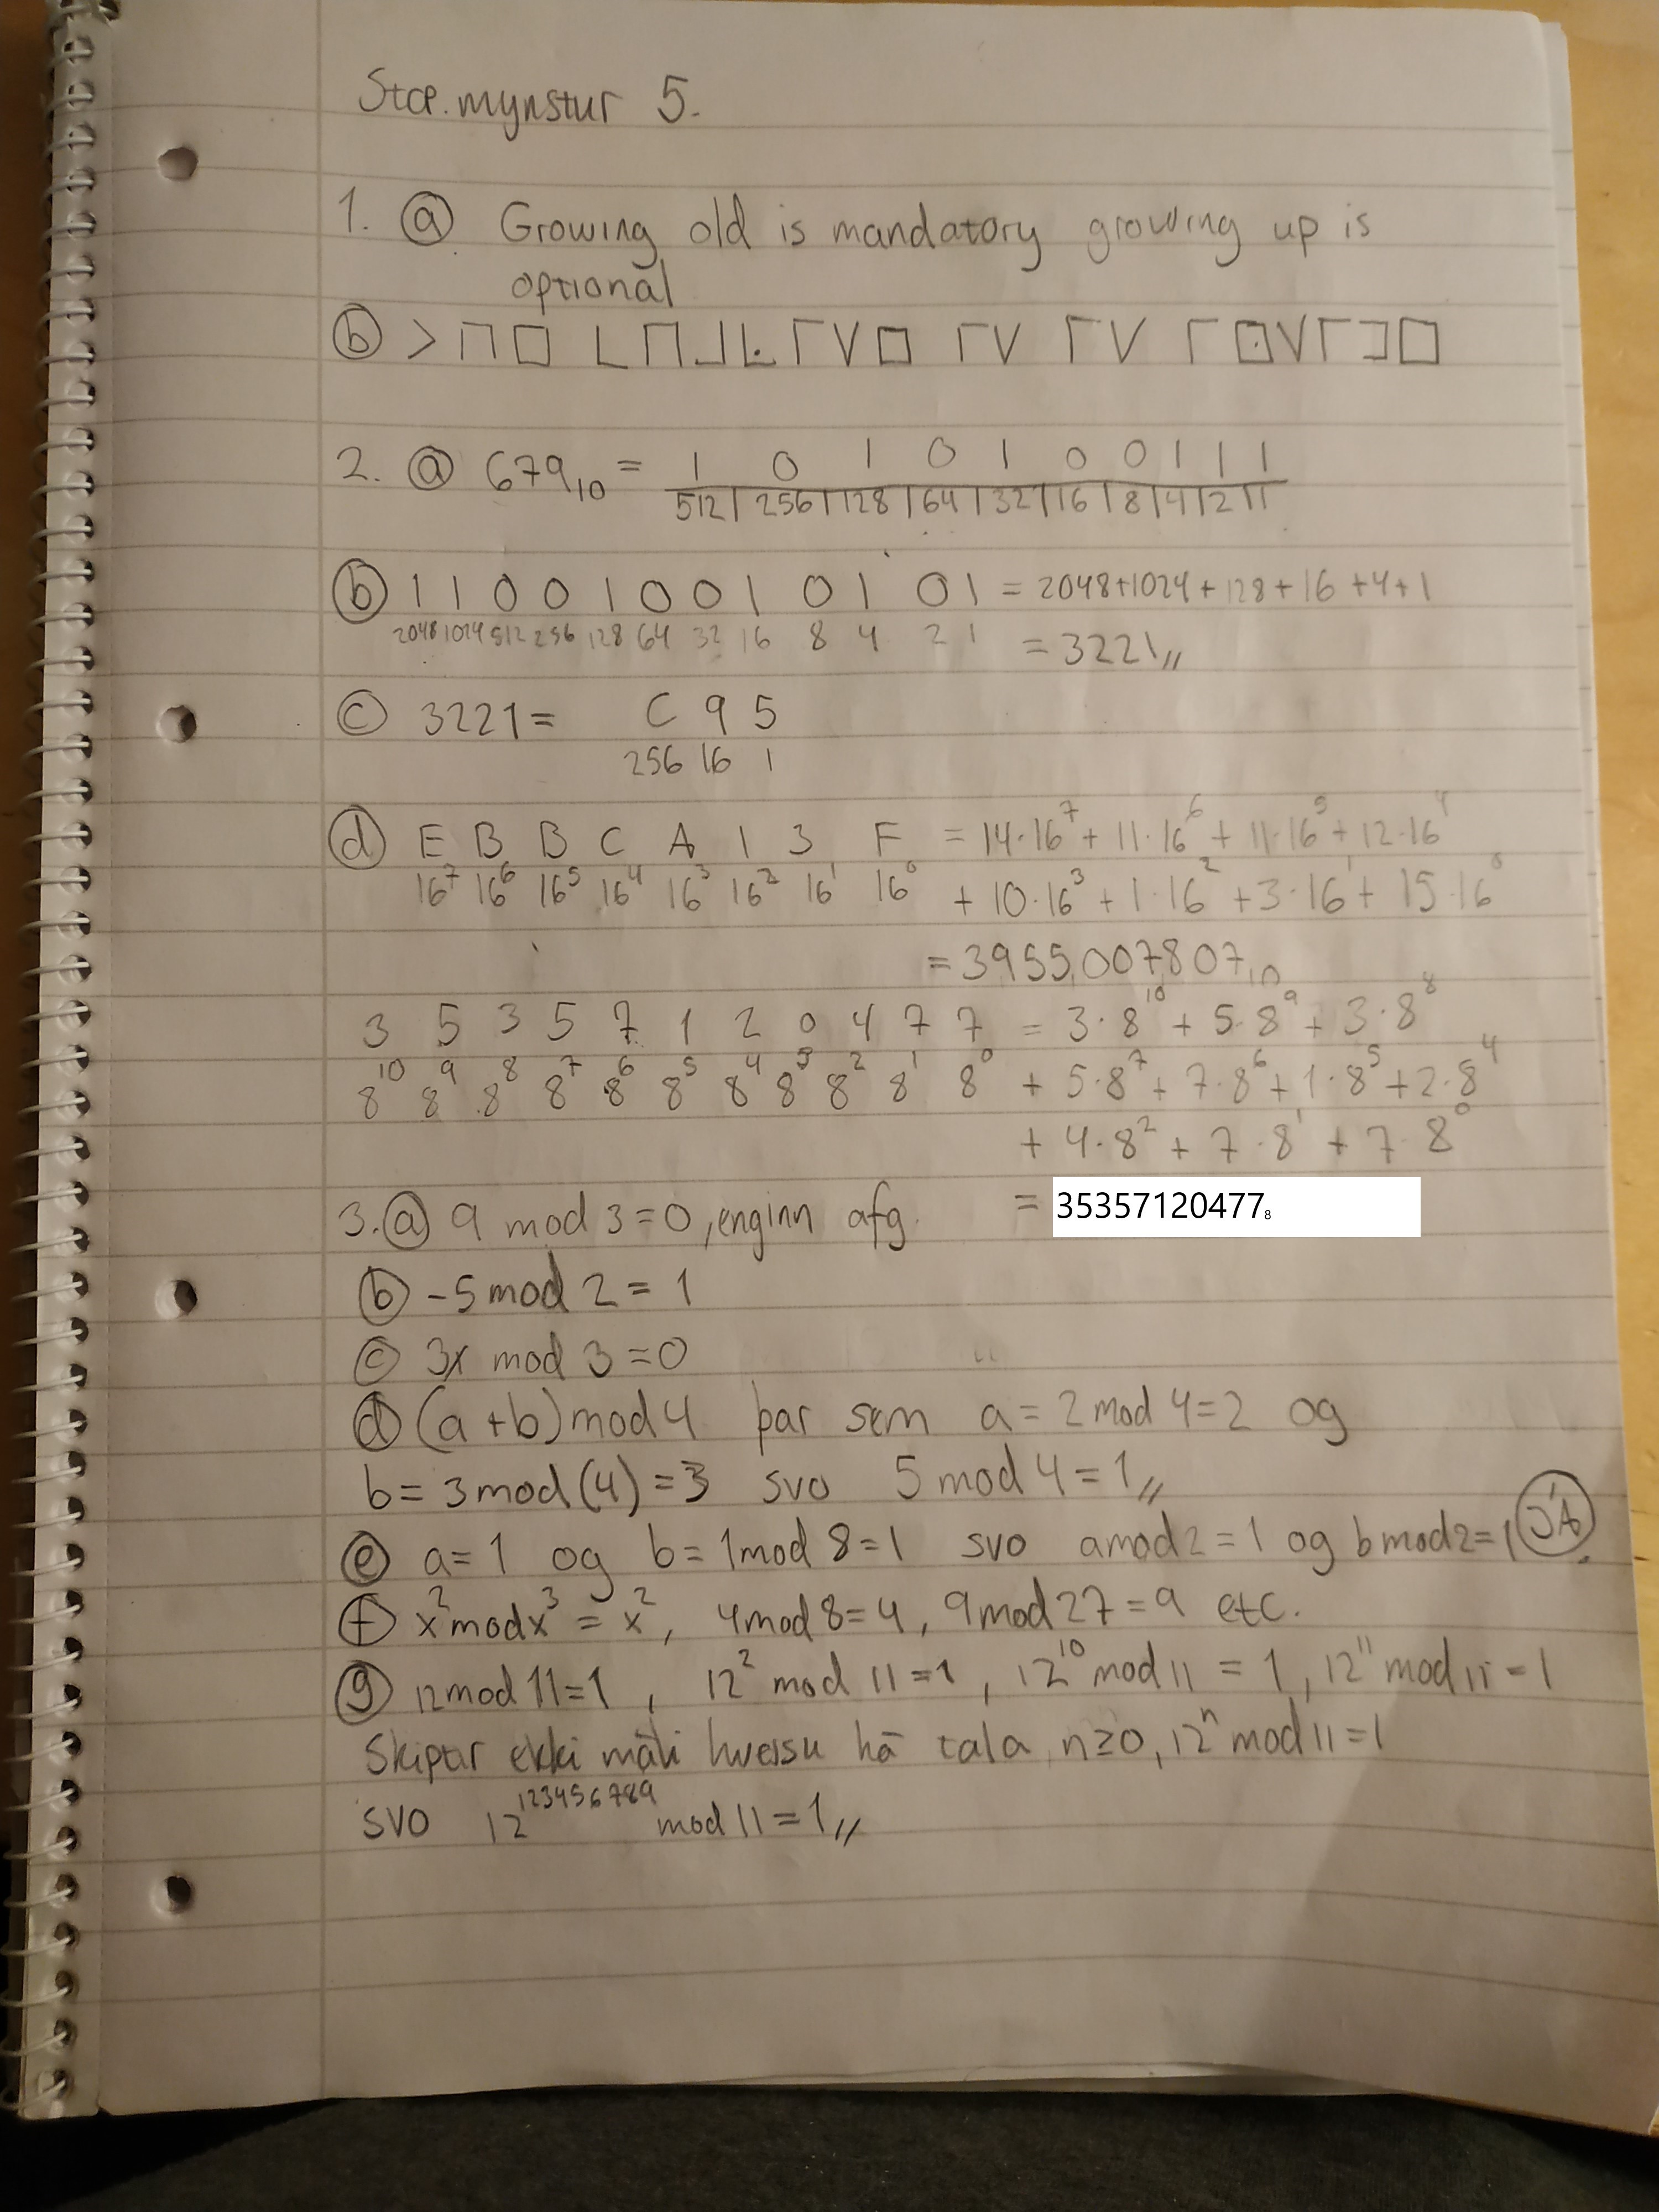 Stæ.mynstur 5.
1. ⓐ Growing old is mandatory growing up is
optional
ⓑ
2. ⓐ 679₁₀ = 1 0 1 0 1 0 0 1 1 1
512 | 256 | 128 | 64 | 32 | 16 | 8 | 4 | 2 | 1
ⓑ 1 1 0 0 1 0 0 1 0 1 0 1 = 2048+1024+128+16+4+1
2048 1024 512 256 128 64 32 16 8 4 2 1 = 3221,,
ⓒ 3221 = C 9 5
256 16 1
ⓓ E B B C A 1 3 F = 14·16⁷ + 11·16⁶ + 11·16⁵ + 12·16⁴
16⁷ 16⁶ 16⁵ 16⁴ 16³ 16² 16¹ 16⁰ + 10·16³ + 1·16² + 3·16¹ + 15·16⁰
= 3955,007,807₁₀
3 5 3 5 7 1 2 0 4 7 7 = 3·8¹⁰ + 5·8⁹ + 3·8⁸
8¹⁰ 8⁹ 8⁸ 8⁷ 8⁶ 8⁵ 8⁴ 8³ 8² 8¹ 8⁰ + 5·8⁷ + 7·8⁶ + 1·8⁵ + 2·8⁴
+ 4·8² + 7·8¹ + 7·8⁰
= 35357120477₈
3. ⓐ 9 mod 3 = 0, enginn afg.
ⓑ -5 mod 2 = 1
ⓒ 3x mod 3 = 0
ⓓ (a+b) mod 4 þar sem a = 2 mod 4 = 2 og
b = 3 mod (4) = 3 svo 5 mod 4 = 1,,
ⓔ a = 1 og b = 1 mod 8 = 1 svo a mod 2 = 1 og b mod 2 = 1 JÁ
ⓕ x² mod x³ = x², 4 mod 8 = 4, 9 mod 27 = 9 etc.
ⓖ 12 mod 11 = 1, 12² mod 11 = 1, 12¹⁰ mod 11 = 1, 12¹¹ mod 11 = 1
Skiptir ekki máli hversu há tala, n≥0, 12ⁿ mod 11 = 1
svo 12¹²³⁴⁵⁶⁷⁸⁹ mod 11 = 1,,